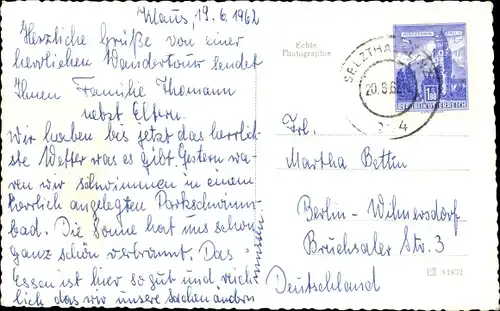 Klaus, 19.6.1962
Herzliche Grüße von einer
herrlichen Wandertour sendet
Ihnen Familie Thomann
nebst Eltern.
Wir haben bis jetzt das herrlich-
ste Wetter was es gibt. Gestern wa-
ren wir schwimmen in einem
herrlich angelegten Parkschwimm-
bad. Die Sonne hat uns schon
ganz schön verbrannt. Das
Essen ist hier so gut und reich-
lich das wir unsere Sachen ändern
müssen
Echte
Photographie
SELZTHAL
20.6.62
REPUBLIK ÖSTERREICH
Frl.
Martha Bettin
Berlin-Wilmersdorf
Bruchsaler Str. 3
Deutschland